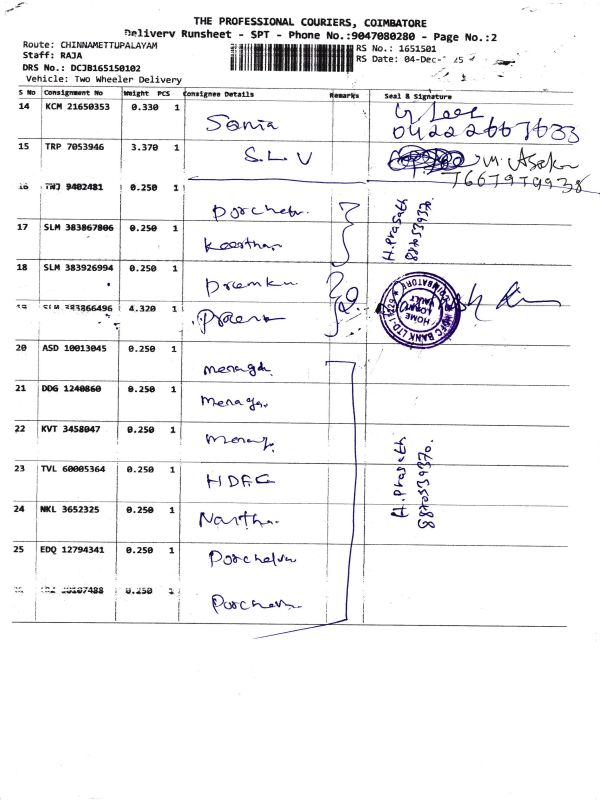 THE PROFESSIONAL COURIERS, COIMBATORE
Delivery Runsheet - SPT - Phone No.:9047080280 - Page No.:2
Route: CHINNAMETTUPALAYAM
RS No.: 1651501
Staff: RAJA
RS Date: 04-Dec-
DRS No.: DCJB165150102
Vehicle: Two Wheeler Delivery
S No Consignment No Weight PCS Consignee Details Remarks Seal & Signature
14 KCM 21650353 0.330 1 Sonia
15 TRP 7053946 3.370 1 S.L.V
16 9402481 0.250 1
17 SLM 383867806 0.250 1 Keerthan
H.Prasath
8870539370.
18 SLM 383926994 0.250 1
19 SLM 383866496 4.320 1
HDFC BANK LTD
HOME LOAN
VAULT
COIMBATORE
20 ASD 10013045 0.250 1 menaga
21 DDG 1240860 0.250 1 menaga.
22 KVT 3458047 0.250 1
23 TVL 60005364 0.250 1 HDFC
H.Prasath
8870539370.
24 NKL 3652325 0.250 1
25 EDQ 12794341 0.250 1
0.250 1